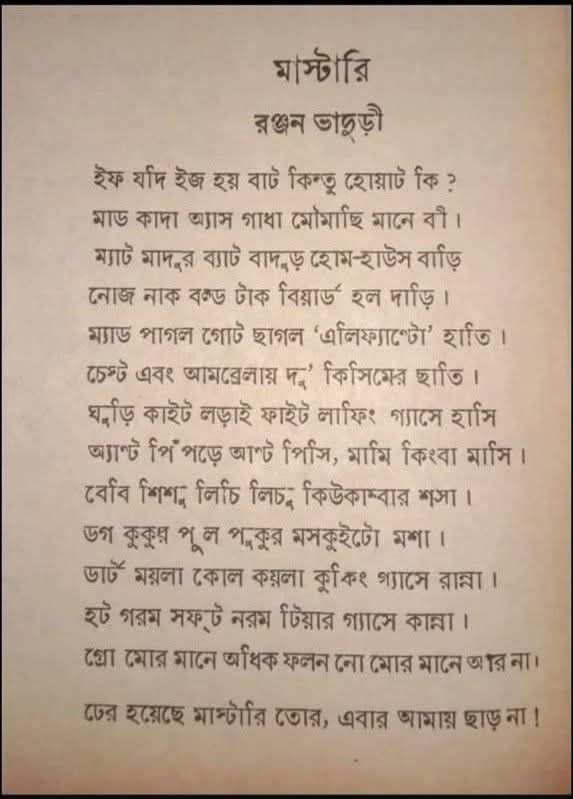 মাস্টারি
রঞ্জন ভাদুড়ী
ইফ যদি ইজ হয় বাট কিন্তু হোয়াট কি ?
মাড কাদা অ্যাস গাধা মৌমাছি মানে বী ।
ম্যাট মাদুর ব্যাট বাদুড় হোম-হাউস বাড়ি
নোজ নাক বল্ড টাক বিয়ার্ড হল দাড়ি ।
ম্যাড পাগল গোট ছাগল ‘এলিফ্যাণ্টো’ হাতি ।
চেস্ট এবং আমব্রেলায় দু’ কিসিমের ছাতি ।
ঘুড়ি কাইট লড়াই ফাইট লাফিং গ্যাসে হাসি
অ্যাণ্ট পিঁপড়ে আণ্ট পিসি, মামি কিংবা মাসি ।
বেবি শিশু লিচি লিচু কিউকাম্বার শসা ।
ডগ কুকুর পুল পুকুর মসকুইটো মশা ।
ডার্ট ময়লা কোল কয়লা কুকিং গ্যাসে রান্না ।
হট গরম সফ্ট নরম টিয়ার গ্যাসে কান্না ।
গ্রো মোর মানে অধিক ফলন নো মোর মানে আর না।
ঢের হয়েছে মাস্টারি তোর, এবার আমায় ছাড় না !